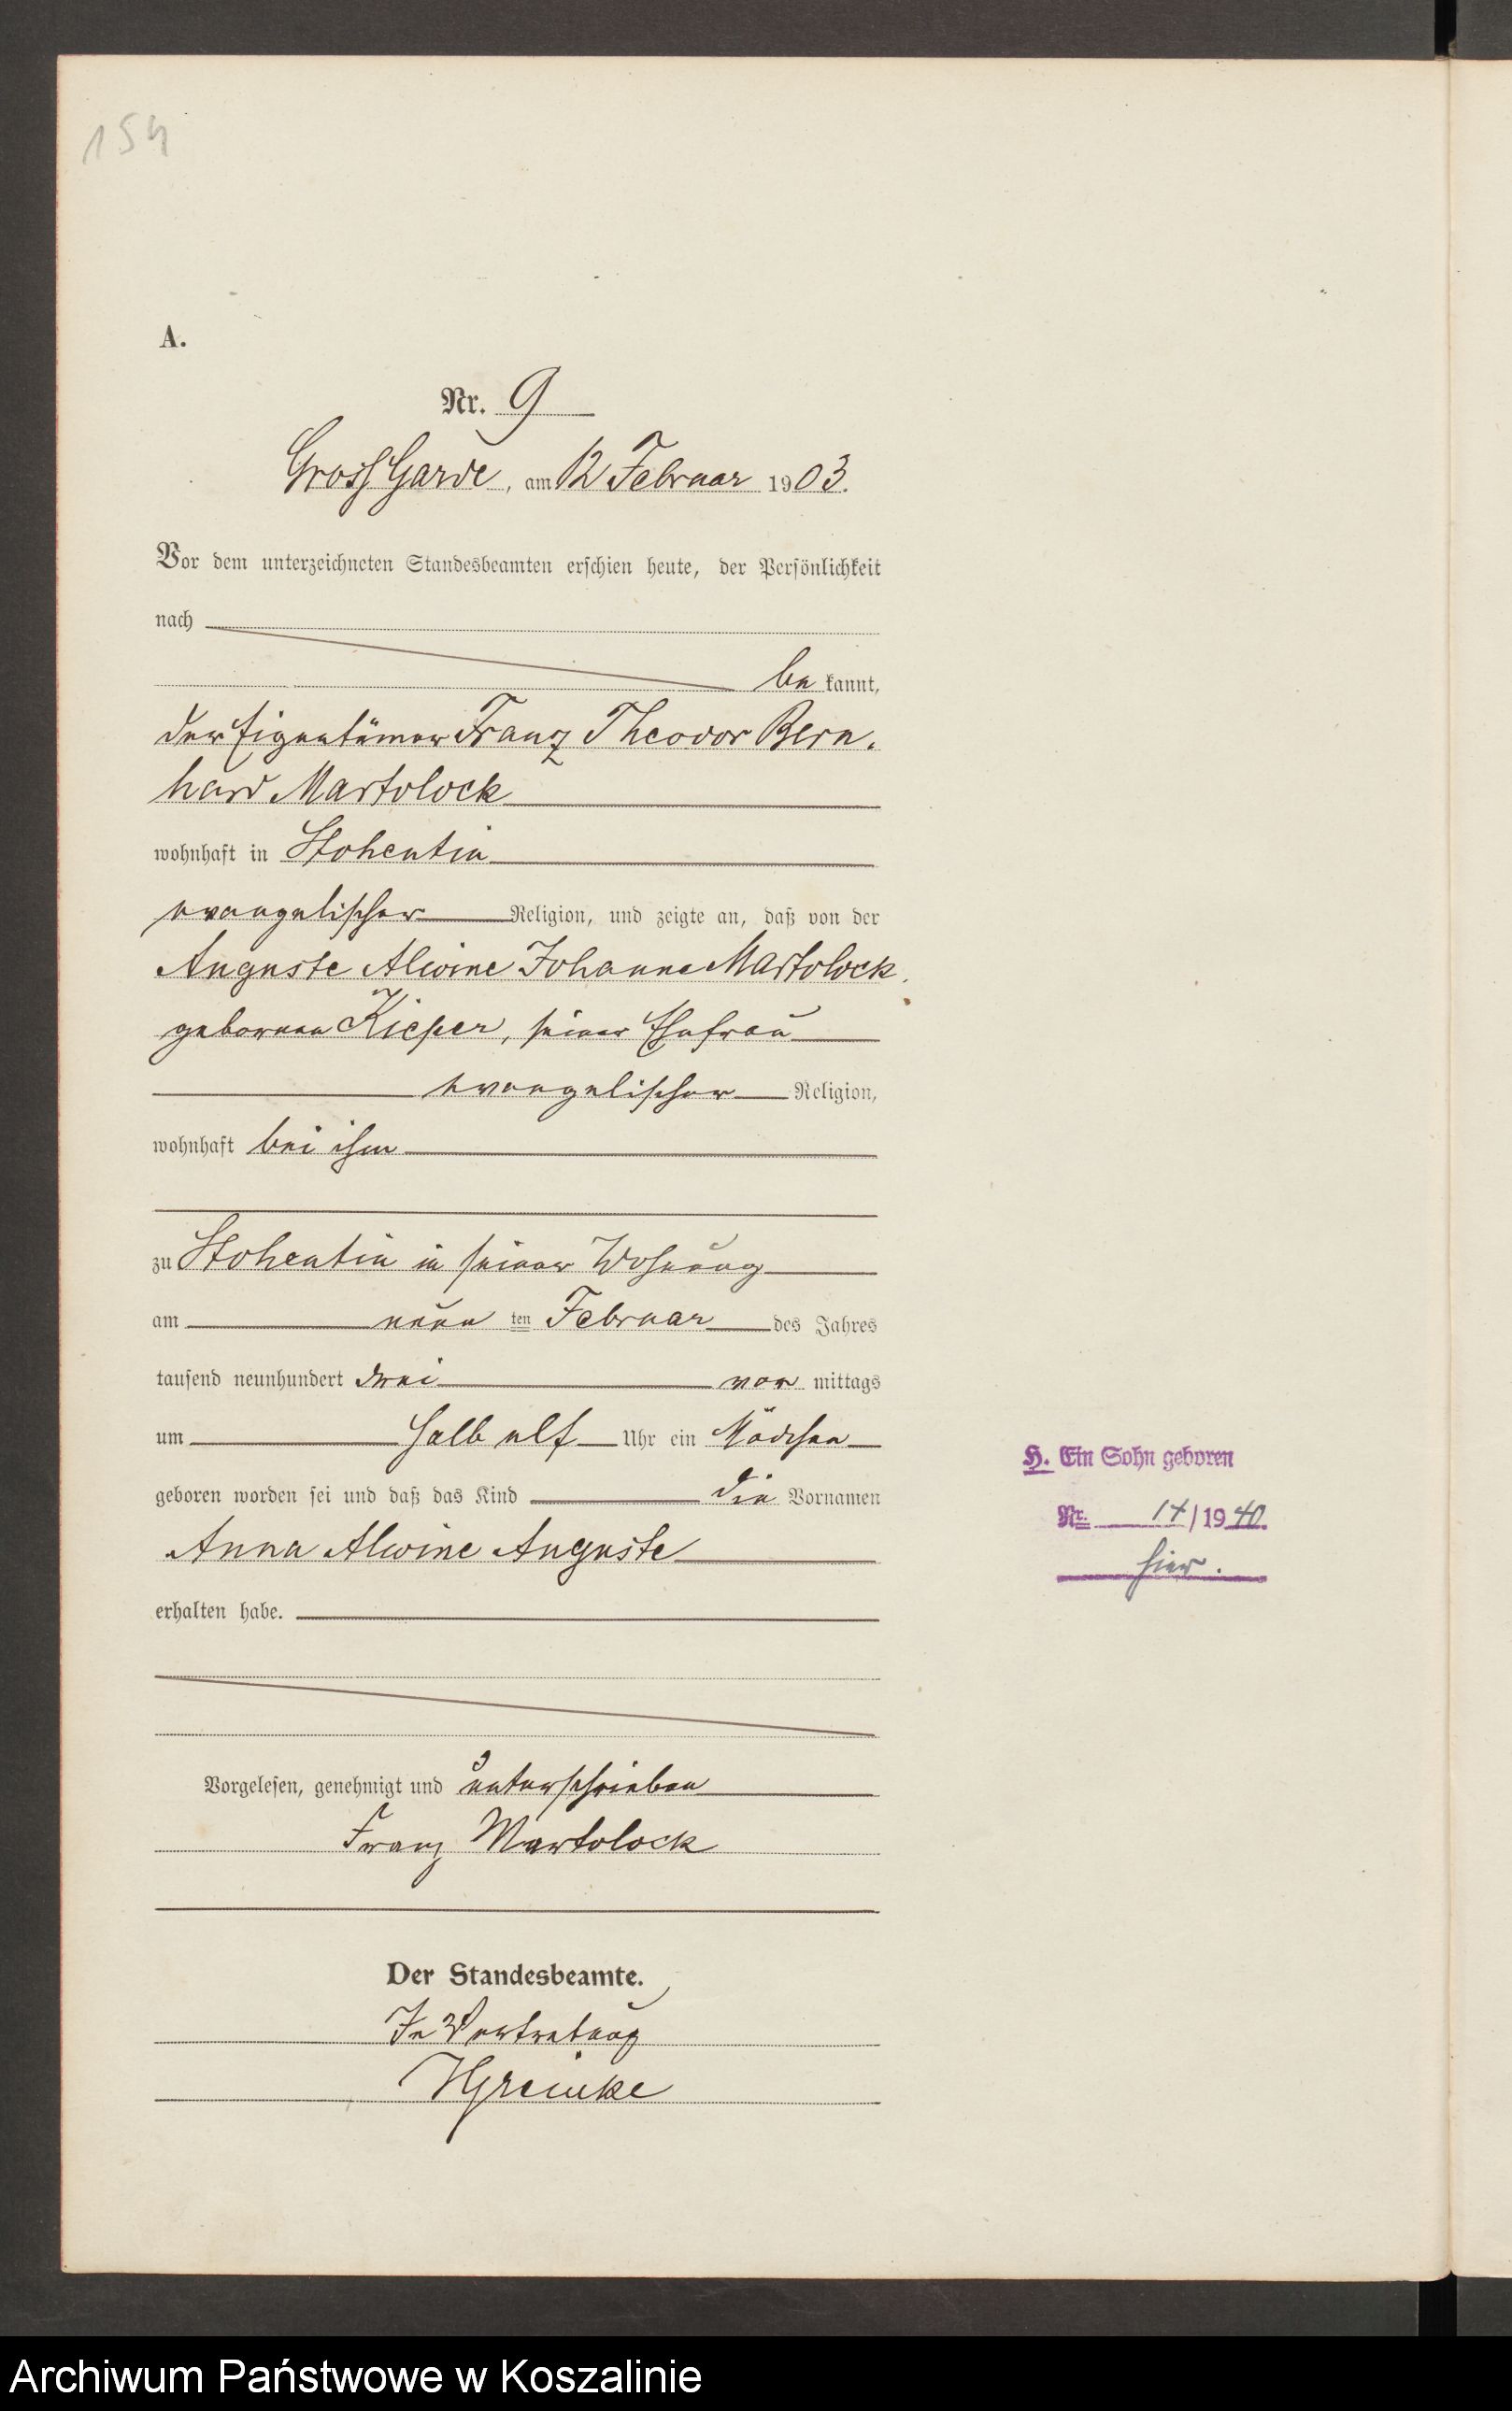 154
A.
Nr. 9
Gross Garde, am 12 Februar 1903.
Vor dem unterzeichneten Standesbeamten erschien heute, der Persönlichkeit
nach
be kannt,
der Eigentümer Franz Theodor Bern.
hard Martolock
wohnhaft in Stohentin
evangelischer Religion, und zeigte an, daß von der
Auguste Alwine Johanne Martolock,
geborenen Kieper, seiner Ehefrau
evangelischer Religion,
wohnhaft bei ihm
zu Stohentin in seiner Wohnung
am neun ten Februar des Jahres
tausend neunhundert drei vor mittags
um halb elf Uhr ein Mädchen
geboren worden sei und daß das Kind die Vornamen
Anna Alwine Auguste
erhalten habe.
H. Ein Sohn geboren
Nr. 14/1940
hier.
Vorgelesen, genehmigt und unterschrieben
Franz Martolock
Der Standesbeamte.
In Vertretung
HGreinke
Archiwum Państwowe w Koszalinie